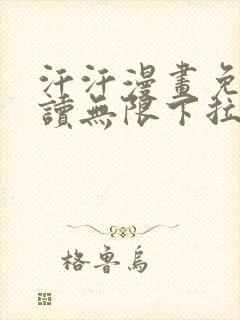 汗汗漫畫免
讀無限下拉
格魯烏